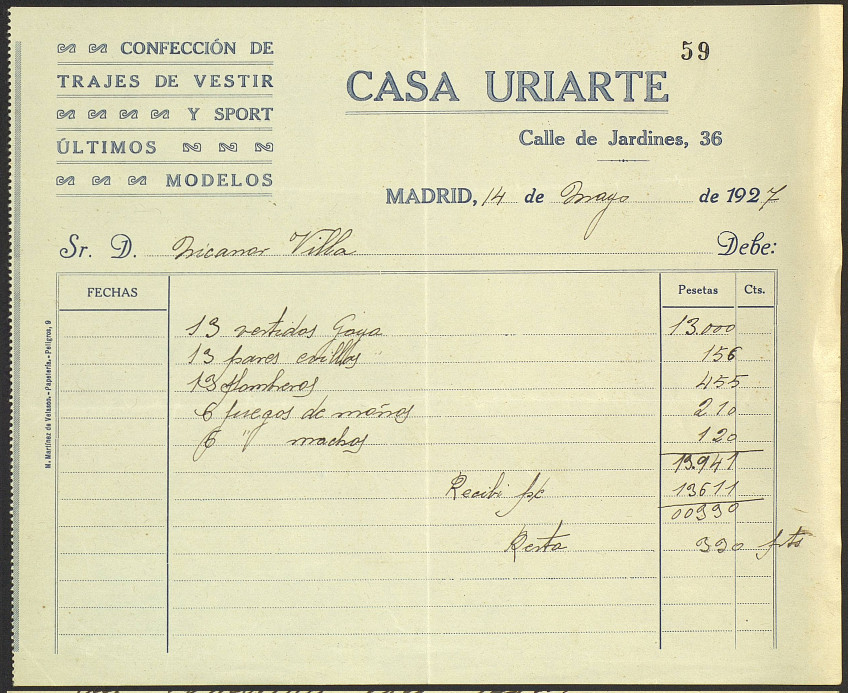 59
CONFECCIÓN DE
TRAJES DE VESTIR
Y SPORT
ÚLTIMOS
MODELOS
CASA URIARTE
Calle de Jardines, 36
MADRID, 14 de Mayo de 1927
Sr. D. Nicanor Villa Debe:
FECHAS Pesetas Cts.
13 vestidos Goya 13.000
13 pares 156
13 Sombreros 455
6 juegos de moños 210
6 " machos 120
13.941
Recibi 13611
00330
Resta 330 pts
M. Martínez de Velasco.-Papelería.-Peligros, 9